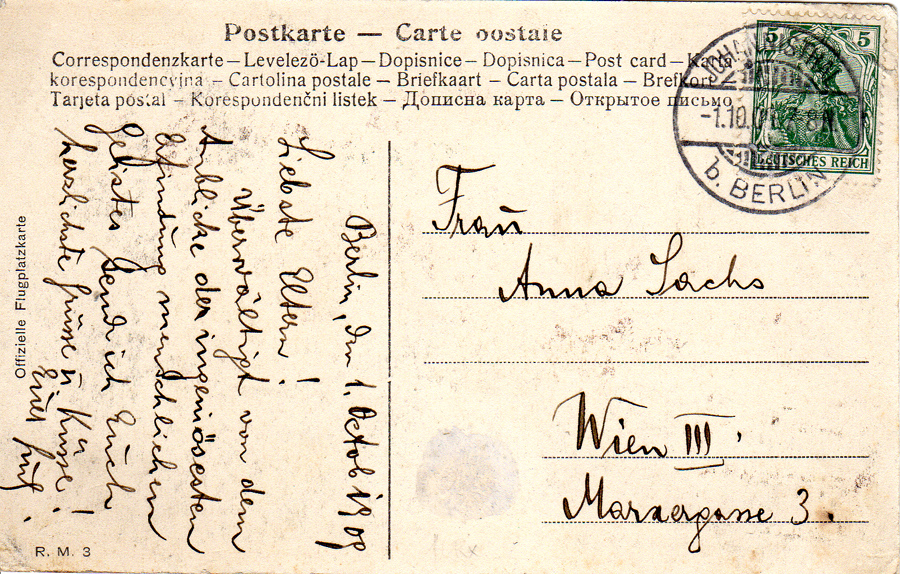 Postkarte — Carte postale
Correspondenzkarte – Levelezö-Lap – Dopisnice – Dopisnica – Post card – Karta
korespondencyjna – Cartolina postale – Briefkaart – Carta postala – Brefkort
Tarjeta postal – Korespondenčni listek – Дописна карта – Открытое письмо
JOHANNISTHAL
-1.10.09
b. BERLIN
5 5
DEUTSCHES REICH
Frau
Anna Sachs
Wien III.
Marxergasse 3.
Berlin, den 1. Octob 1909
Liebste Eltern!
Überwältigt von dem
Anblicke der ingeniösesten
Erfindung menschlichen
Geistes send ich Euch
herzlichste Grüsse u. Küsse!
Euer
Offizielle Flugplatzkarte
R. M. 3